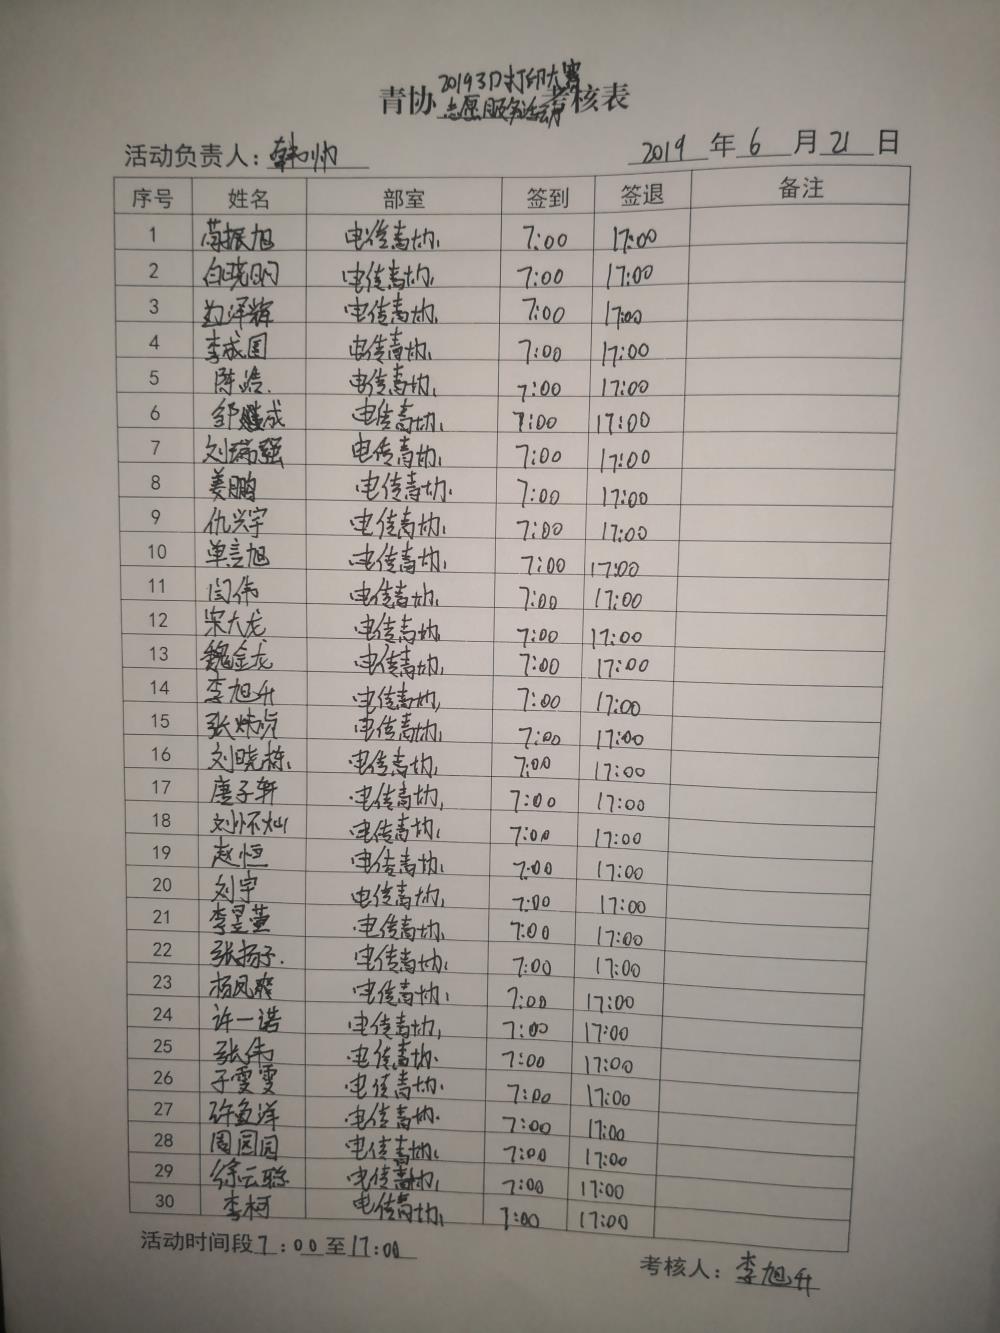 青协2019 3D打印大赛志愿服务活动考核表
活动负责人：韩帅 2019年6月21日
序号 姓名 部室 签到 签退 备注
1 苟振旭 电信青协 7:00 17:00
2 白晓明 电信青协 7:00 17:00
3 泽辉 电信青协 7:00 17:00
4 李成国 电信青协 7:00 17:00
5 陈浩 电信青协 7:00 17:00
6 邹继成 电信青协 7:00 17:00
7 刘瑞强 电信青协 7:00 17:00
8 姜鹏 电信青协 7:00 17:00
9 仇兴宇 电信青协 7:00 17:00
10 单言旭 电信青协 7:00 17:00
11 闫伟 电信青协 7:00 17:00
12 宋大龙 电信青协 7:00 17:00
13 魏金龙 电信青协 7:00 17:00
14 李旭升 电信青协 7:00 17:00
15 张炜 电信青协 7:00 17:00
16 刘晓栋 电信青协 7:00 17:00
17 唐子轩 电信青协 7:00 17:00
18 刘怀灿 电信青协 7:00 17:00
19 赵恒 电信青协 7:00 17:00
20 刘宇 电信青协 7:00 17:00
21 李昱萱 电信青协 7:00 17:00
22 张扬子 电信青协 7:00 17:00
23 杨凤 电信青协 7:00 17:00
24 许一诺 电信青协 7:00 17:00
25 张伟 电信青协 7:00 17:00
26 子雯雯 电信青协 7:00 17:00
27 许鱼洋 电信青协 7:00 17:00
28 周园园 电信青协 7:00 17:00
29 徐云聪 电信青协 7:00 17:00
30 李柯 电信青协 7:00 17:00
活动时间段7:00至17:00
考核人：李旭升